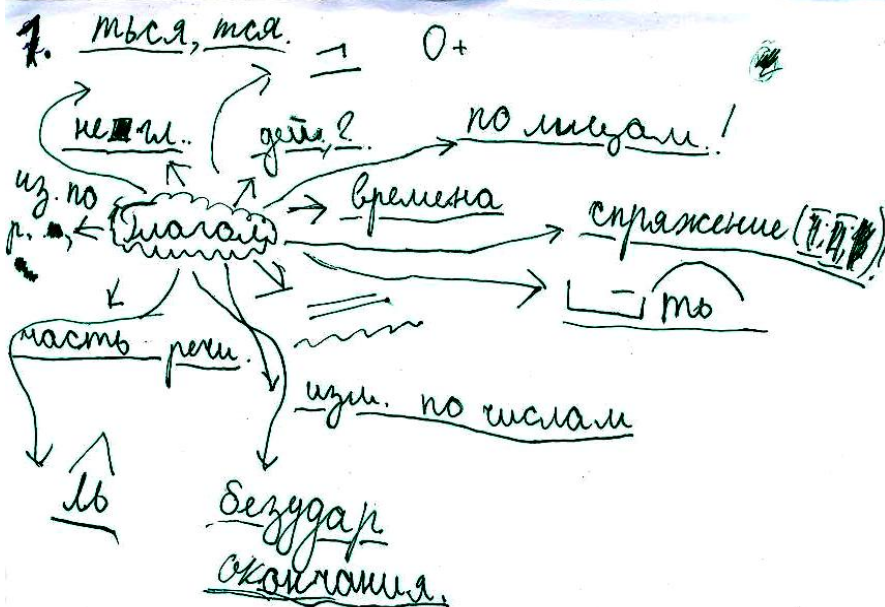 1. ться, тся.
0+
не гл..
дей., ?
по лицам!
из. по
р.
Глагол
времена
спряжение (I, II,
ть
часть речи.
изм. по числам
ль
безудар
окончания.